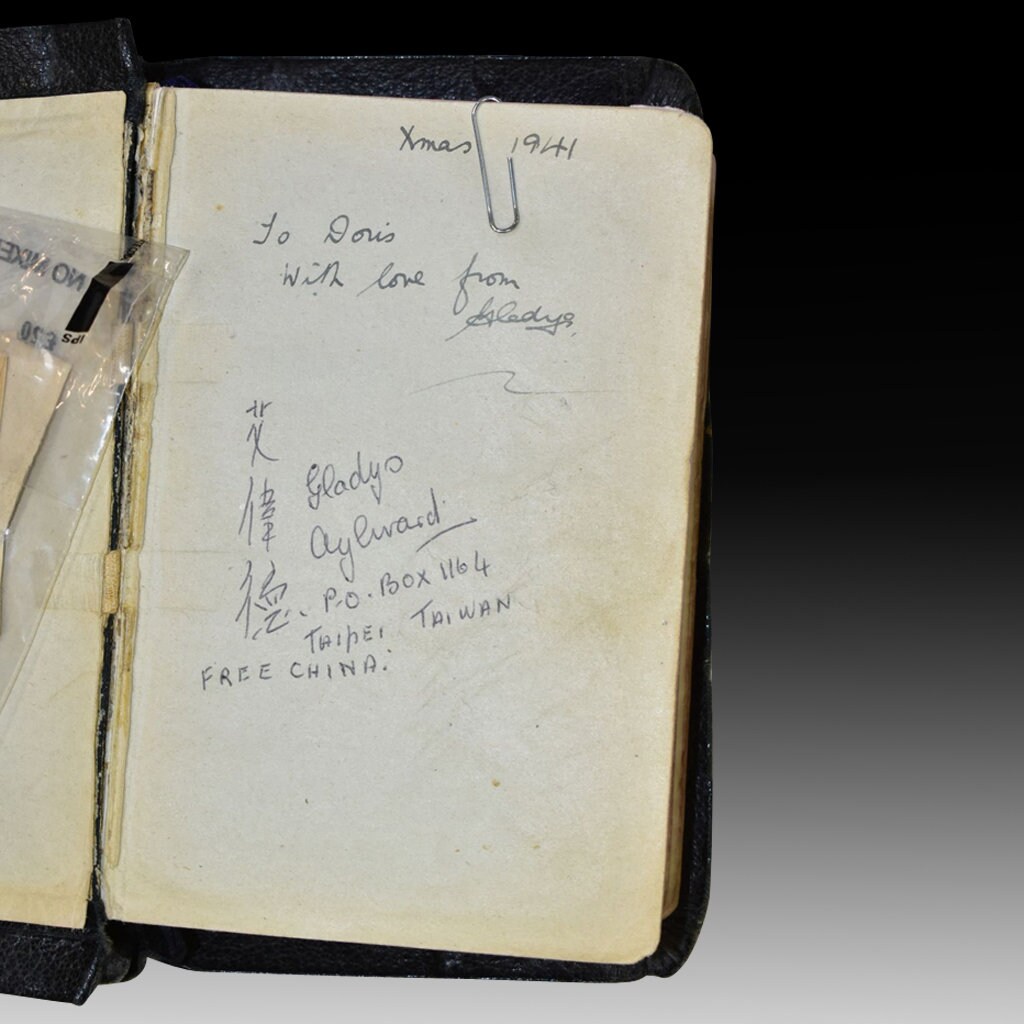 Xmas 1941
To Doris
With love from
Gladys.
艾偉德
Gladys
Aylward
P.O. BOX 1164
TAIPEI TAIWAN
FREE CHINA.
NO
£20